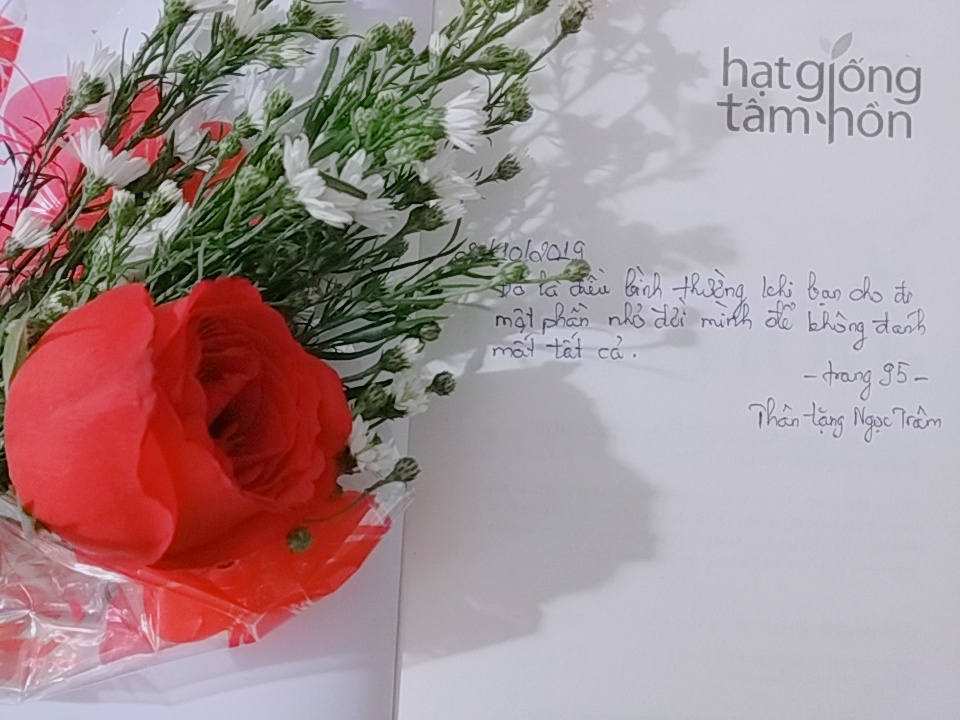 hạt giống
tâm hồn
/10/2019
Đó là điều bình thường khi bạn cho đi
một phần nhỏ đời mình để không đánh
mất tất cả.
- trang 95 -
Thân tặng Ngọc Trâm